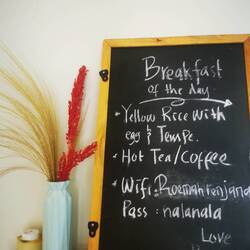 Breakfast
of the day
• Yellow Rice with
egg & Tempe.
• Hot Tea/Coffee
• Wifi: Roemah Renjana
Pass : nalanala
Love